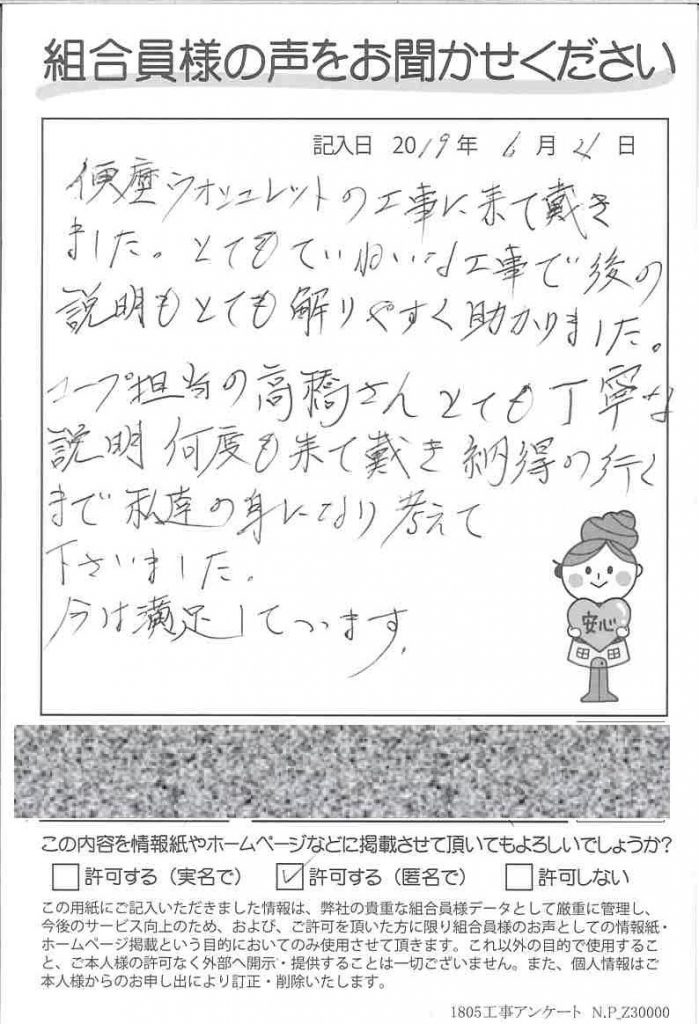 組合員様の声をお聞かせください
記入日 2019年 6月 21日
便座ウオシュレットの工事に来て戴き
ました。とてもていねいな工事で後の
説明もとても解りやすく助かりました。
コープ担当の高橋さんとても丁寧な
説明 何度も来て戴き納得の行く
まで私達の身になり考えて
下さいました。
今は満足しています。
安心
この内容を情報紙やホームページなどに掲載させて頂いてもよろしいでしょうか?
許可する（実名で） 許可する（匿名で） 許可しない
この用紙にご記入いただきました情報は、弊社の貴重な組合員様データとして厳重に管理し、
今後のサービス向上のため、および、ご許可を頂いた方に限り組合員様のお声としての情報紙・
ホームページ掲載という目的においてのみ使用させて頂きます。これ以外の目的で使用するこ
と、ご本人様の許可なく外部へ開示・提供することは一切ございません。また、個人情報はご
本人様からのお申し出により訂正・削除いたします。
1805工事アンケート N.P_Z30000